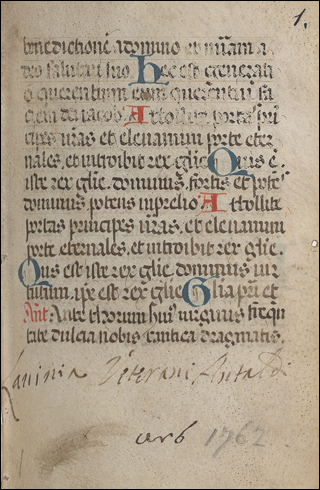 1.
benedictionē a domino et mīam a
deo salutari suo Hec est generati
o querentium eum querentiū fa
ciem dei iacob. Attollite portas prī
cipes ūras et eleuamini porte eter
nales, et introibit rex glīe Quis ē.
iste rex glīe. dominus, fortis et potēs
dominus potens in prelio Attollite
portas principes ūras, et eleuamini
porte eternales, et introibit rex glīe.
Quis est iste rex glīe dominus uir
tutum, ipe est rex glīe Glīa pri et
Ant. Ante thorum huiꝰ uirginis freq̄n
tate dulcia nobis cantica dragmatis.
Lavinia Veterani Antaldi
urb 1762